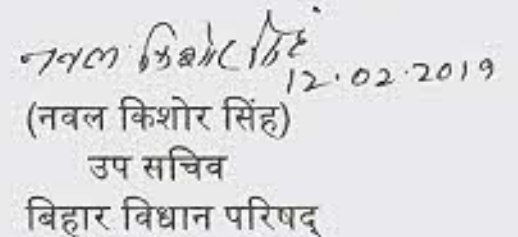 नवल किशोर सिंह
12.02.2019
(नवल किशोर सिंह)
उप सचिव
बिहार विधान परिषद्